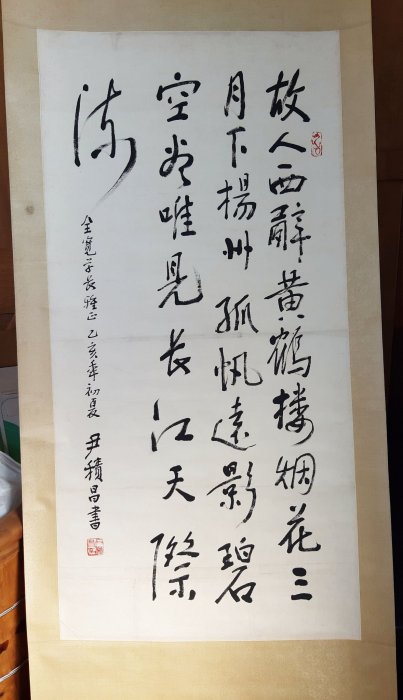 故人西辭黃鶴樓烟花三
月下揚州孤帆遠影碧
空盡唯見長江天際
流
全寬学長雅正乙亥年初夏尹積昌書